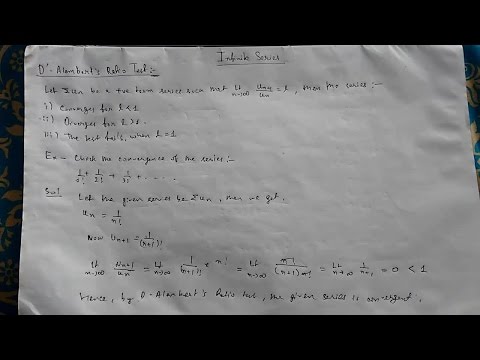 Infinite Series
D'-Alambert's Ratio Test :-
Let Σun be a +ve term series such that Lt n→∞ un+1/un = l, then the series :-
i) Converges for l < 1
ii) Diverges for l > 1
iii) The test fails, when l = 1
Ex - Check the convergence of the series :-
1/1! + 1/2! + 1/3! + - - - -
Sol Let the given series be Σun, then we get,
un = 1/n!
Now un+1 = 1/(n+1)!
Lt n→∞ un+1/un = Lt n→∞ 1/(n+1)! × n! = Lt n→∞ n!/(n+1) n! = Lt n→∞ 1/n+1 = 0 < 1
Hence, by D-Alambert's Ratio test, the given series is convergent.